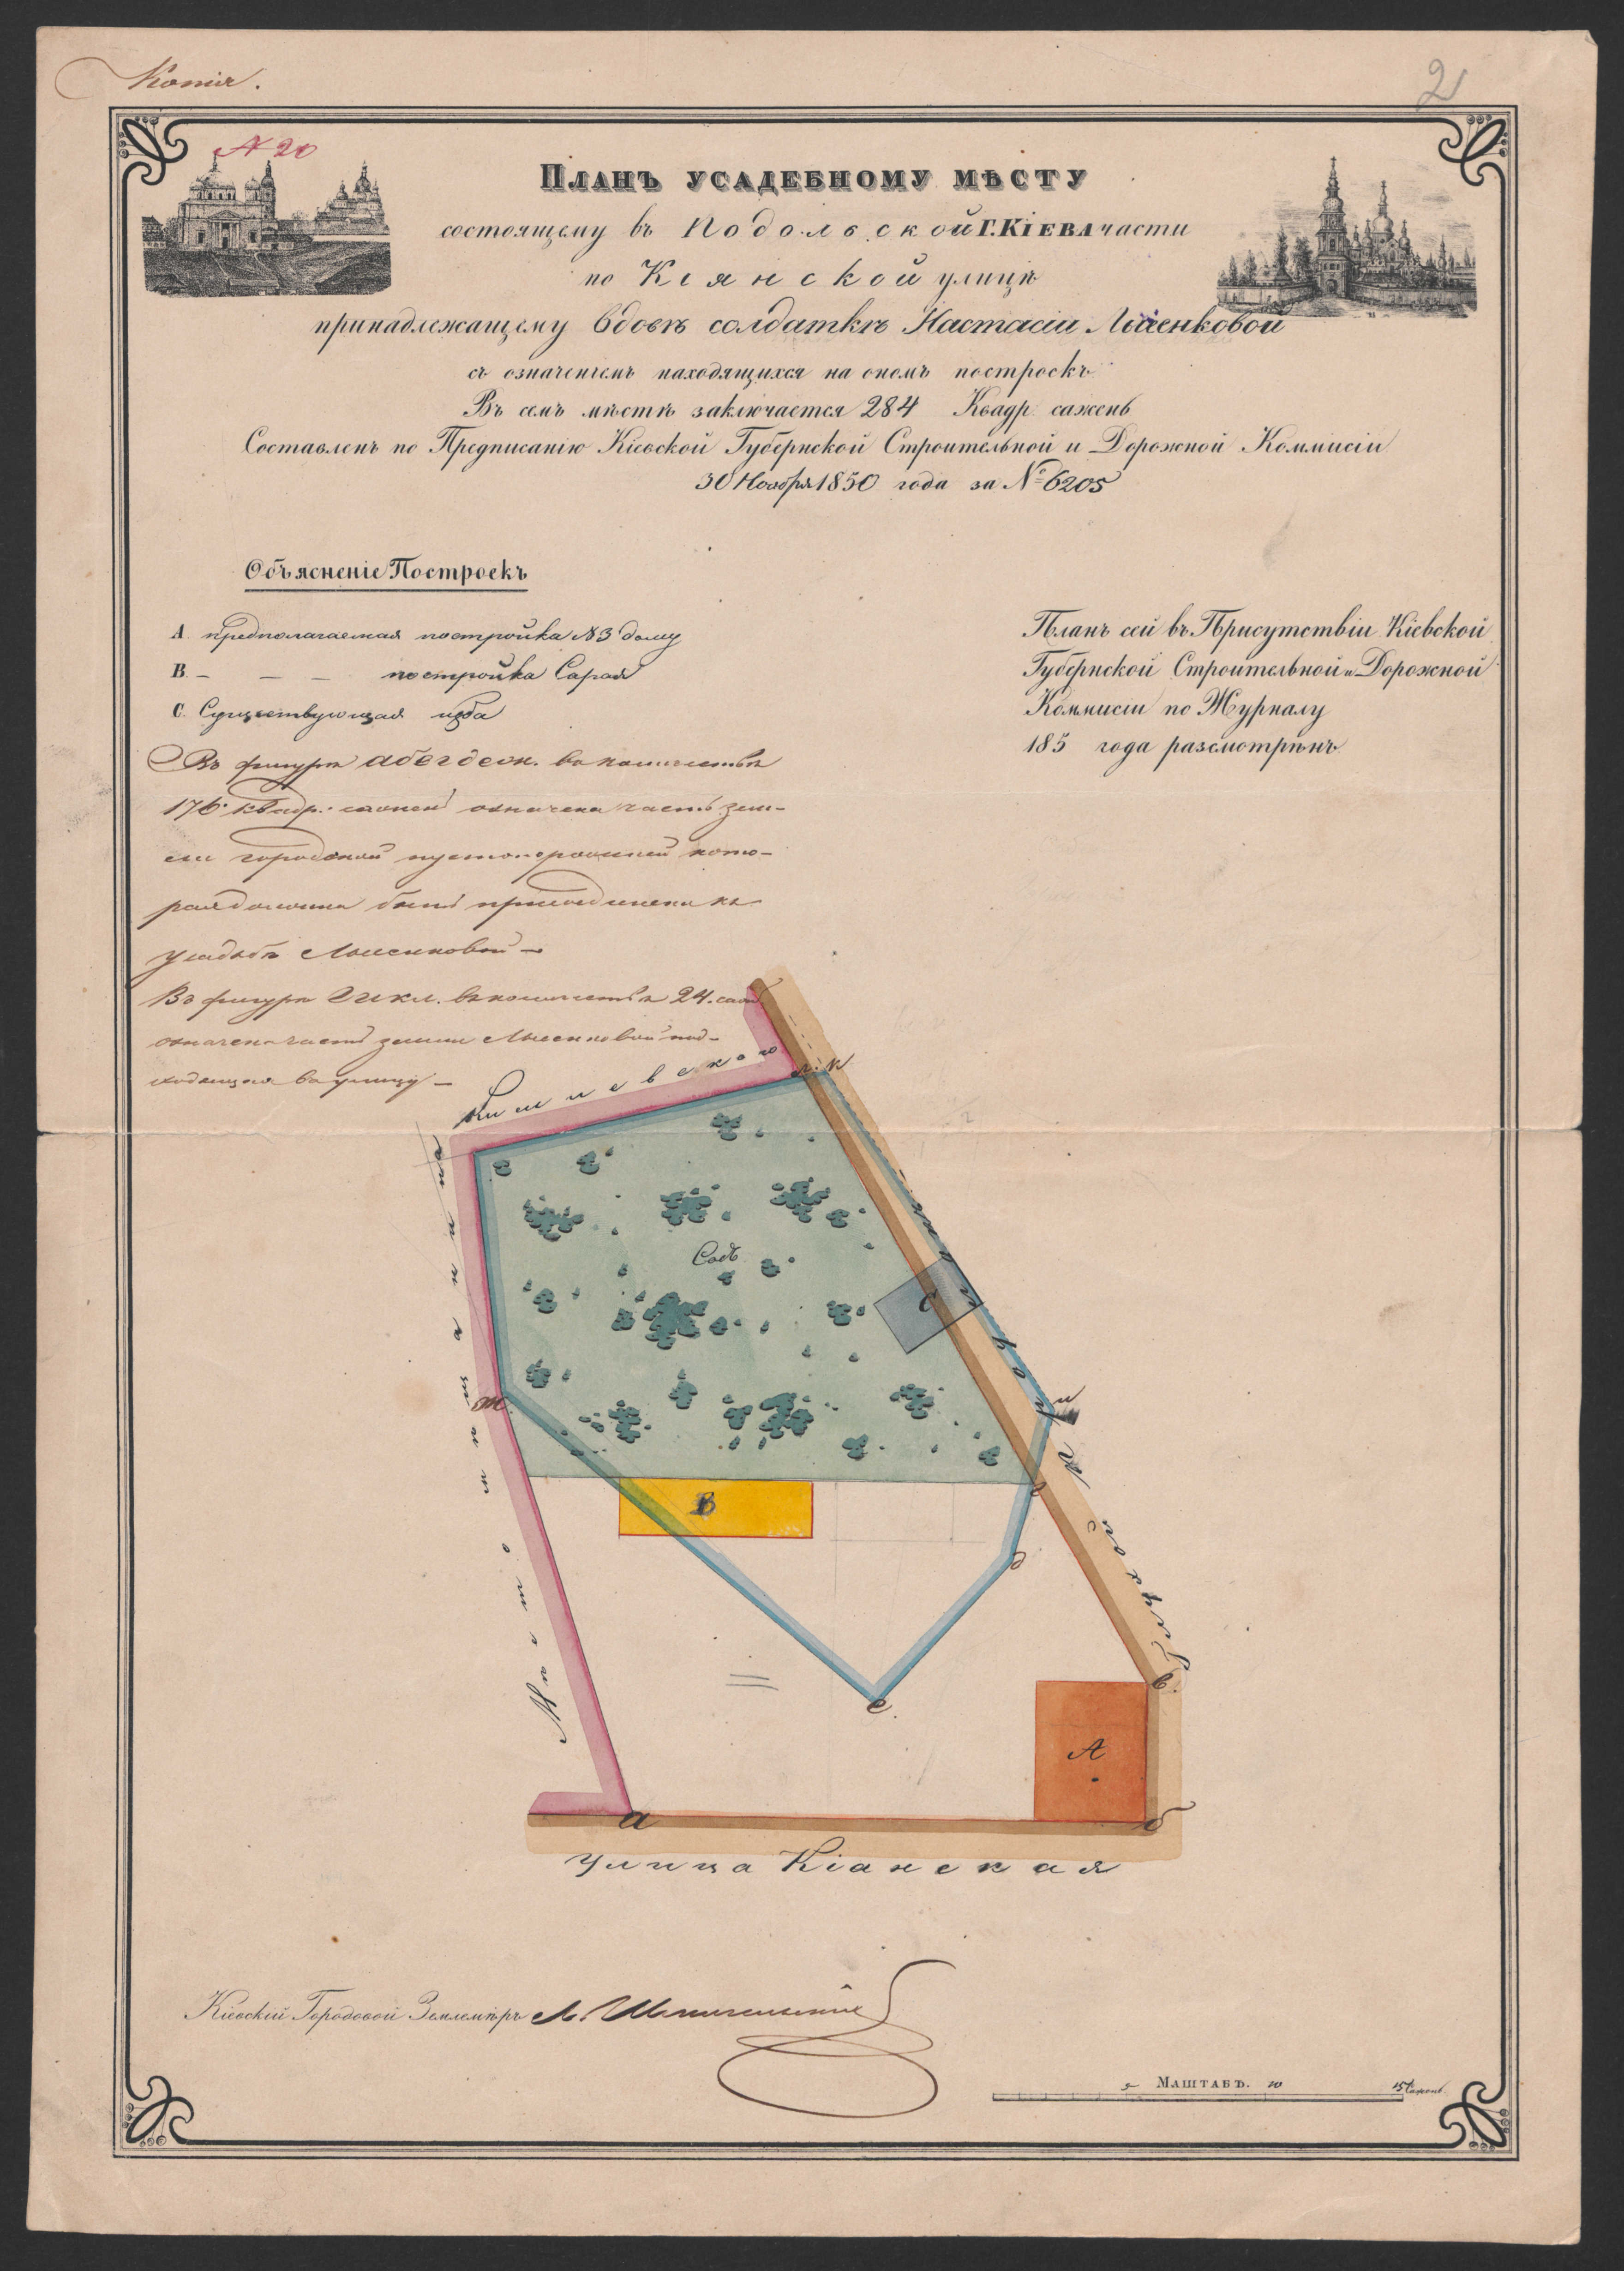 Копія.
2
N 20
Планъ усадебному мѣсту
состоящему въ Подольской Г. Кіева части
по Кіянской улицѣ
принадлежащему вдовѣ солдаткѣ Настасіи Лысенковой
съ означеніемъ находящихся на ономъ построекъ
Въ семъ мѣстѣ заключается 284 Квадр. сажень
Составленъ по Предписанію Кіевской Губернской Строительной и Дорожной Коммисіи
30 Ноября 1850 года за № 6205
Объясненіе Построекъ
А предполагаемая постройка N3 дому
В. — — — постройка Сарая
С. Существующая изба
Въ фигурѣ абвгдеж. въ количествѣ
176 квадр. сажень означена часть зем-
ли городской пустопорожней кото-
рая должна быть присоединена къ
усадьбѣ Лысенковой —
Въ фигурѣ гикл. въ количествѣ 24. саж.
означена часть земли Лысенковой
въ улицу —
Планъ сей въ Присутствіи Кіевской
Губернской Строительной и Дорожной
Коммисіи по Журналу
185 года разсмотрѣнъ
л. к
Садъ
С
ж.
и
г
В
д
е.
в.
А
а
б
Мѣсто мѣщанина
Улица Кіанская
Кіевскій Городовой Землемѣръ
5 Масштабъ. 10 15 Сажень.